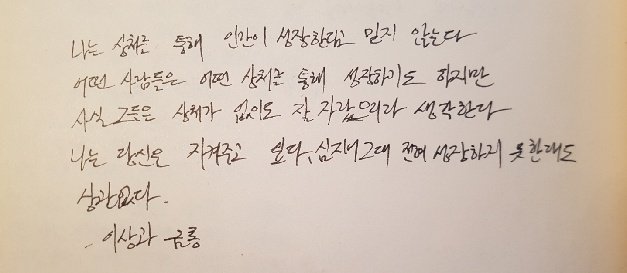 나는 상처를 통해 인간이 성장한다고 믿지 않는다
어떤 사람들은 어떤 상처를 통해 성장하기도 하지만
사실 그들은 상처가 없이도 잘 자랐으리라 생각한다
나는 당신을 지켜주고 싶다. 심지어 그대 전혀 성장하지 못한대도
상관없다.
- 이상과